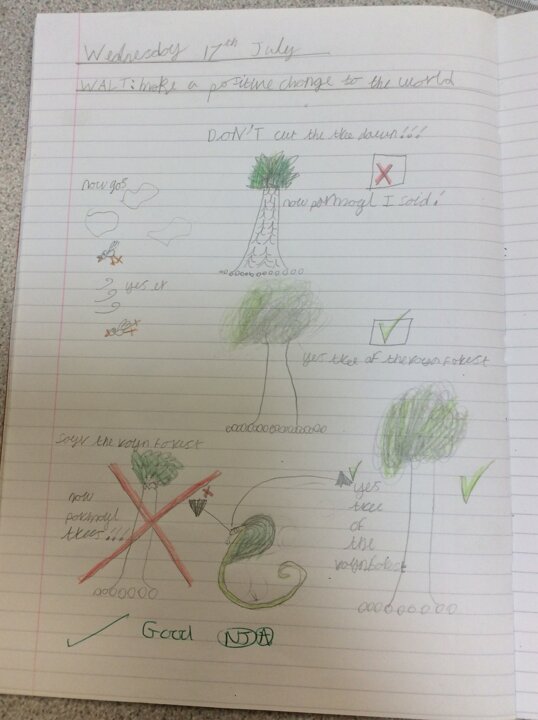 Wednesday 17th July
WALT: make a positive change to the world
DON'T cut the tree down!!!
now gas
now parmoyl I said!
yes et
yes tree of the rayn forest
save the rayn forest
now parmoyl trees!!!
yes tree of the raynforest
Good NJA